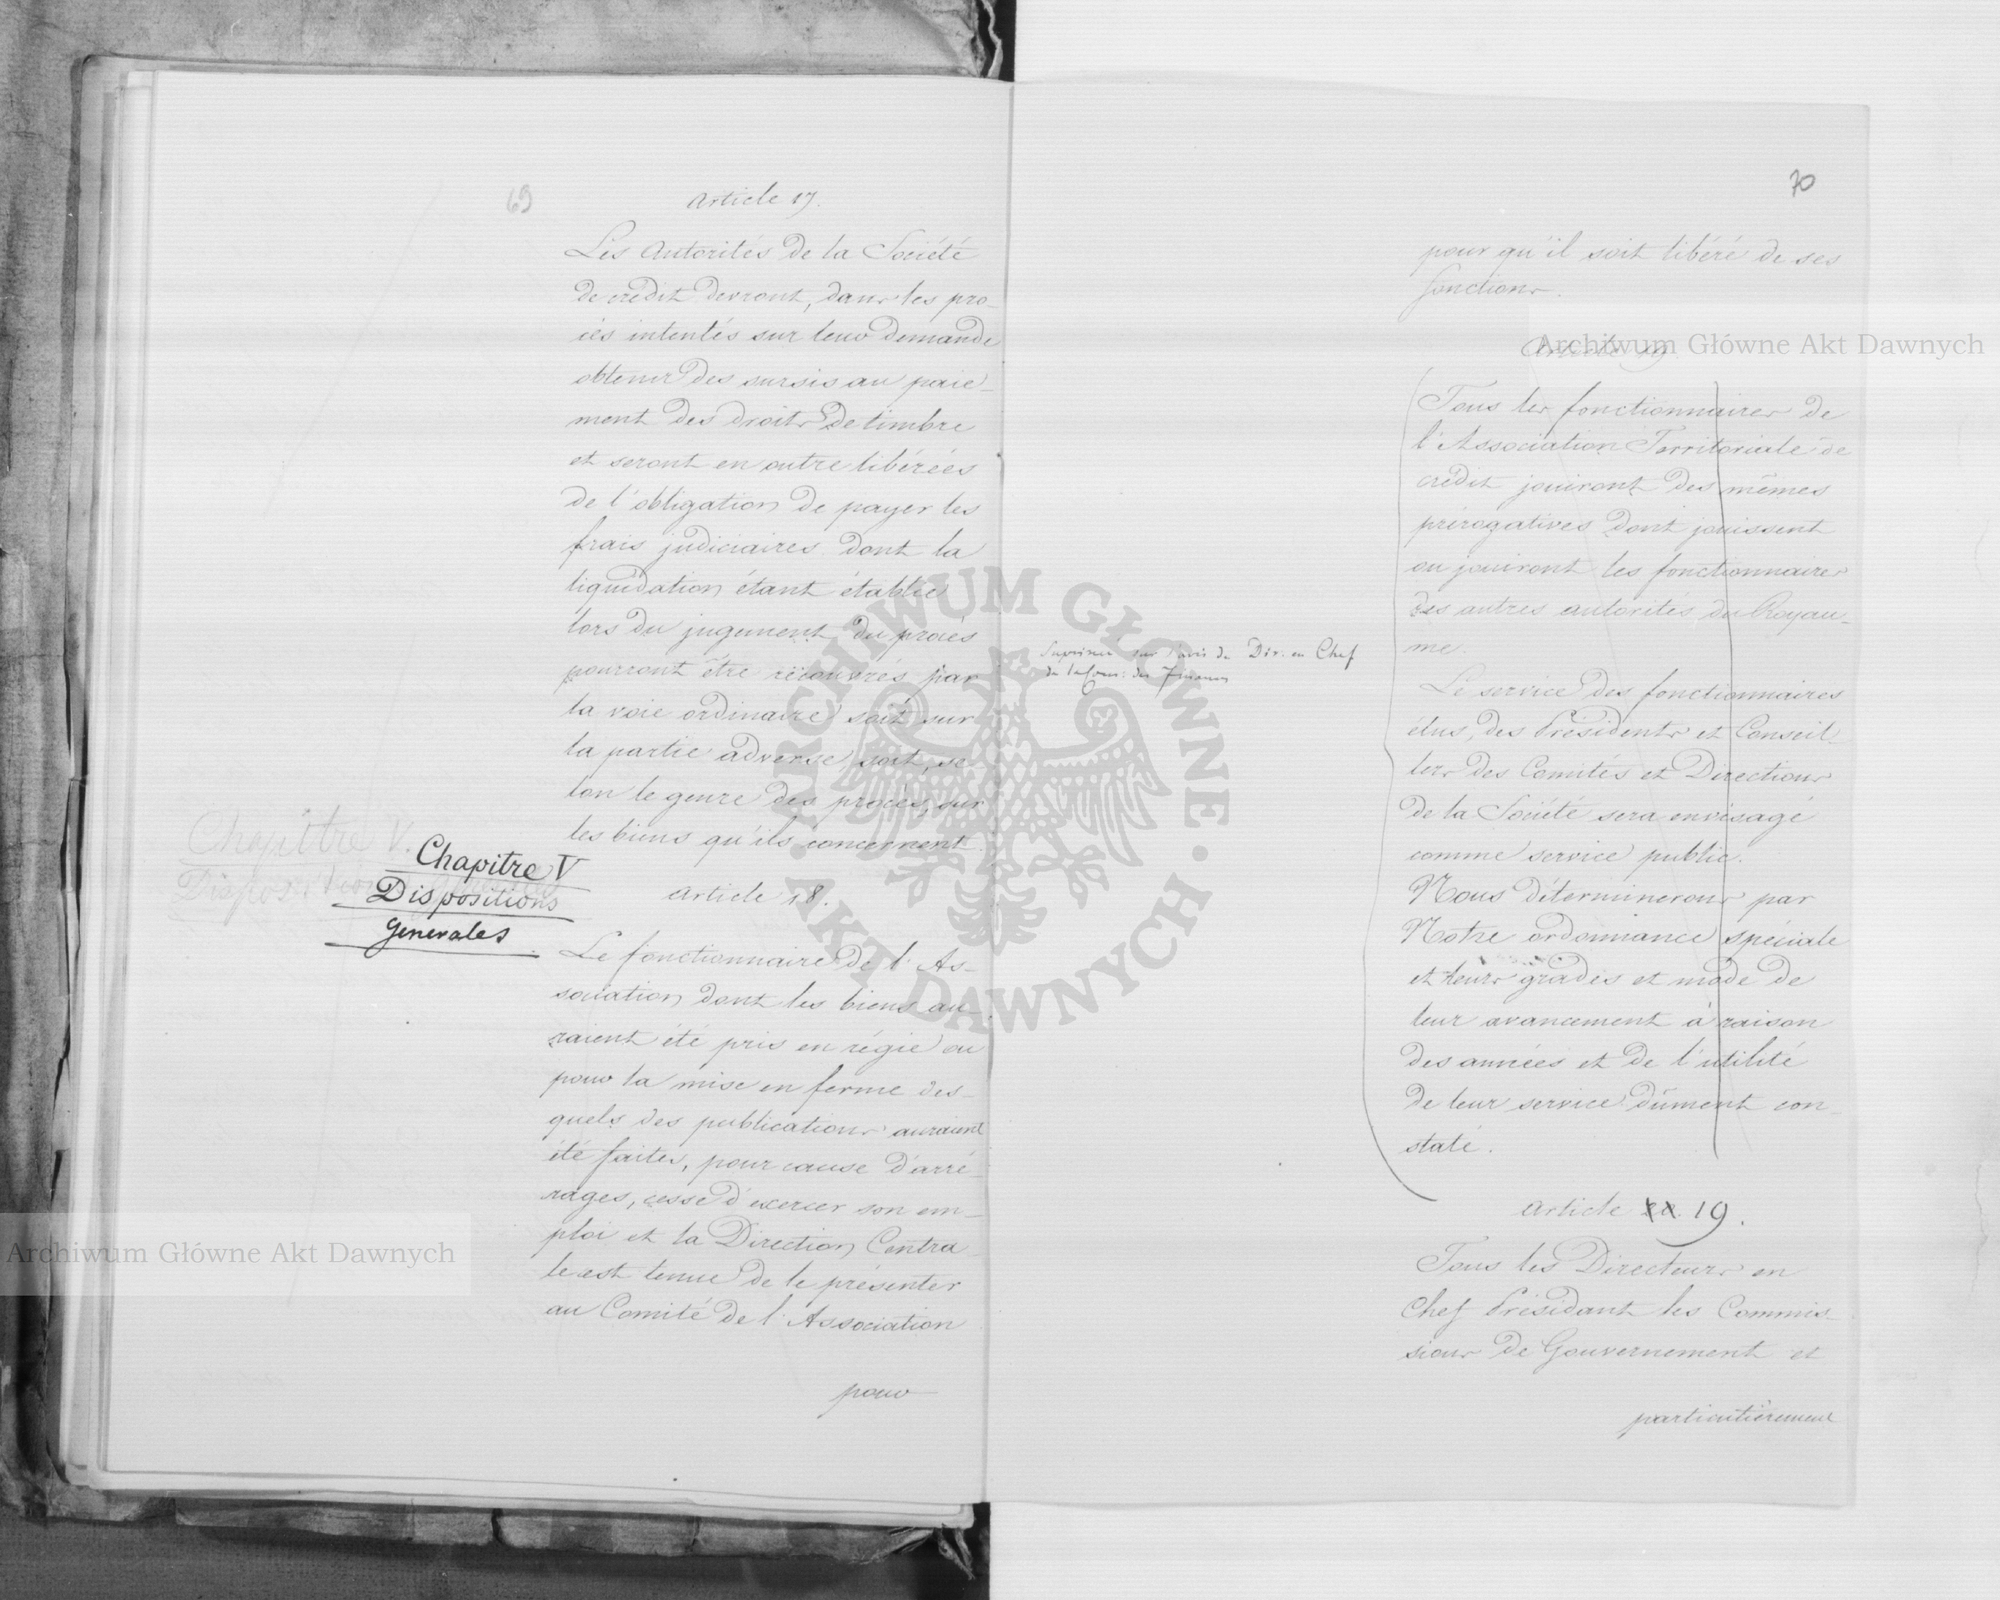 69
Article 17.
Les Autorités de la Société
de crédit devront, dans les pro-
cés intentés sur leur demande
obtenir des sursis au paie-
ment des droits de timbre
et seront en outre libérées
de l'obligation de payer les
frais judiciaires dont la
liquidation étant établie
lors du jugement du procés
pourront être récouvrés par
la voie ordinaire soit sur
la partie adverse, soit, se-
lon le genre des procés, sur
les biens qu'ils concernent.
Chapitre V.
Dispositions
Chapitre V
Dispositions
générales
Article 18.
Le fonctionnaire de l'As-
sociation dont les biens au-
raient été pris en régie ou
pour la mise en ferme des-
quels des publications auraient
été faites, pour cause d'arré-
rages, cesse d'exercer son em-
ploi et la Direction Centra-
le est tenue de le présenter
au Comité de l'Association
pour
70
pour qu'il soit libéré de ses
fonctions.
Article 19
Tous les fonctionnaires de
l'Association Territoriale de
crédit jouiront des mêmes
prérogatives dont jouissent
ou jouiront les fonctionnaires
des autres autorités du Royau-
me.
Le service des fonctionnaires
élus, des Présidents et Conseil-
lers des Comités et Directions
de la Société sera envisagé
comme service public.
Nous déterminerons par
Notre ordonnance spéciale
et leurs grades et mode de
leur avancement à raison
des années et de l'utilité
de leur service dûment con-
staté.
sur l'avis du Dir. en Chef
de la Com: des Finances
Article 19.
Tous les Directeurs en
Chef Présidant les Commis-
sions de Gouvernement et
particulièrement
Archiwum Główne Akt Dawnych
Archiwum Główne Akt Dawnych
ARCHIWUM GŁÓWNE · AKT DAWNYCH ·